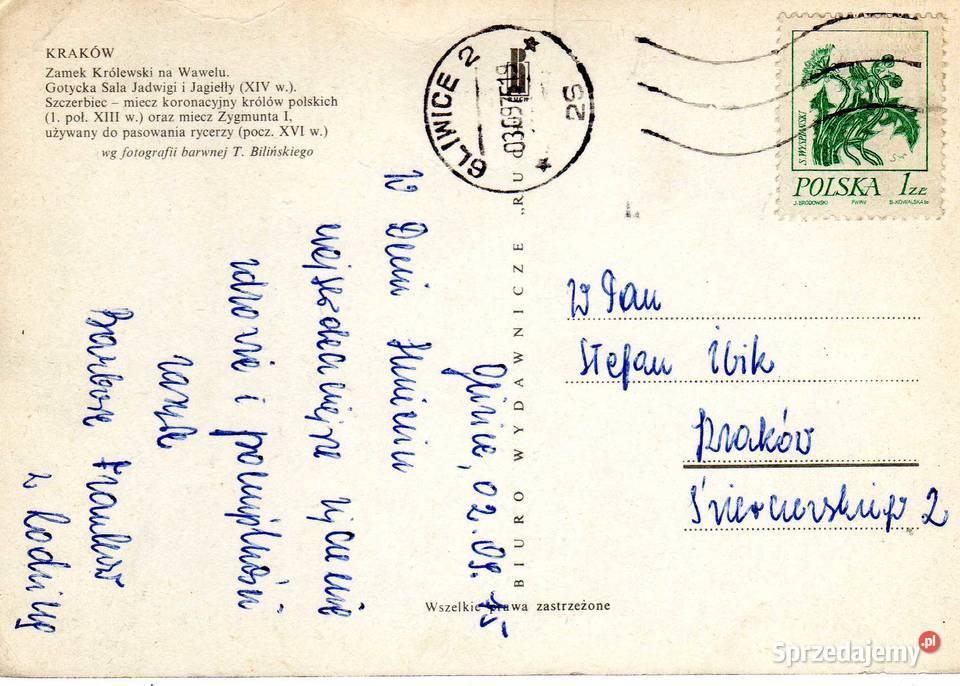 KRAKÓW
Zamek Królewski na Wawelu.
Gotycka Sala Jadwigi i Jagiełły (XIV w.).
Szczerbiec – miecz koronacyjny królów polskich
(1. poł. XIII w.) oraz miecz Zygmunta I,
używany do pasowania rycerzy (pocz. XVI w.)
wg fotografii barwnej T. Bilińskiego
GLIWICE 2
2S
S. WYSPIAŃSKI
POLSKA 1 ZŁ
J. BRODOWSKI PWPW B. KOWALSKA
BIURO WYDAWNICZE „RU
Gliwice, 02.09.
W Dniu Imienin
najserdeczniejsze życzenia
zdrowia i pomyślności
Barbara
z Rodziną
W Pan
Stefan Ibik
Kraków
Świerczewskiego 2
Wszelkie prawa zastrzeżone
Sprzedajemy.pl